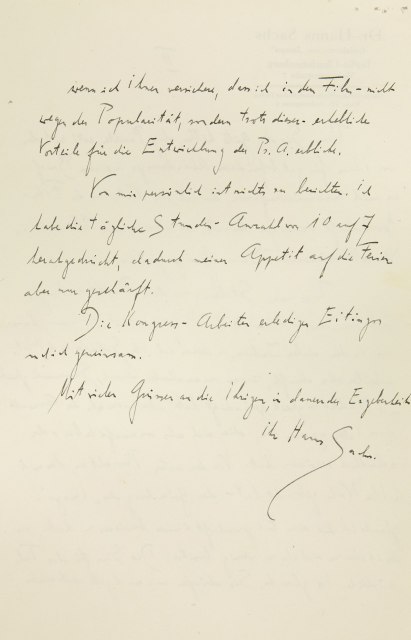 wenn ich Ihnen versichere, dass ich in den Film - nicht
wegen der Popularität, sondern trotz dieser - erhebliche
Vorteile für die Entwicklung der Ps. A. erblicke.
Von mir persönlich ist nichts zu berichten. Ich
habe die tägliche Stunden-Anzahl von 10 auf 7
herabgedrückt, dadurch meinen Appetit auf die Ferien
aber nur geschärft.
Die Kongress-Arbeiten erledigen Eitingon
und ich gemeinsam.
Mit vielen Grüssen an die Ihrigen, in dauernder Ergebenheit
Ihr Hanns Sachs.